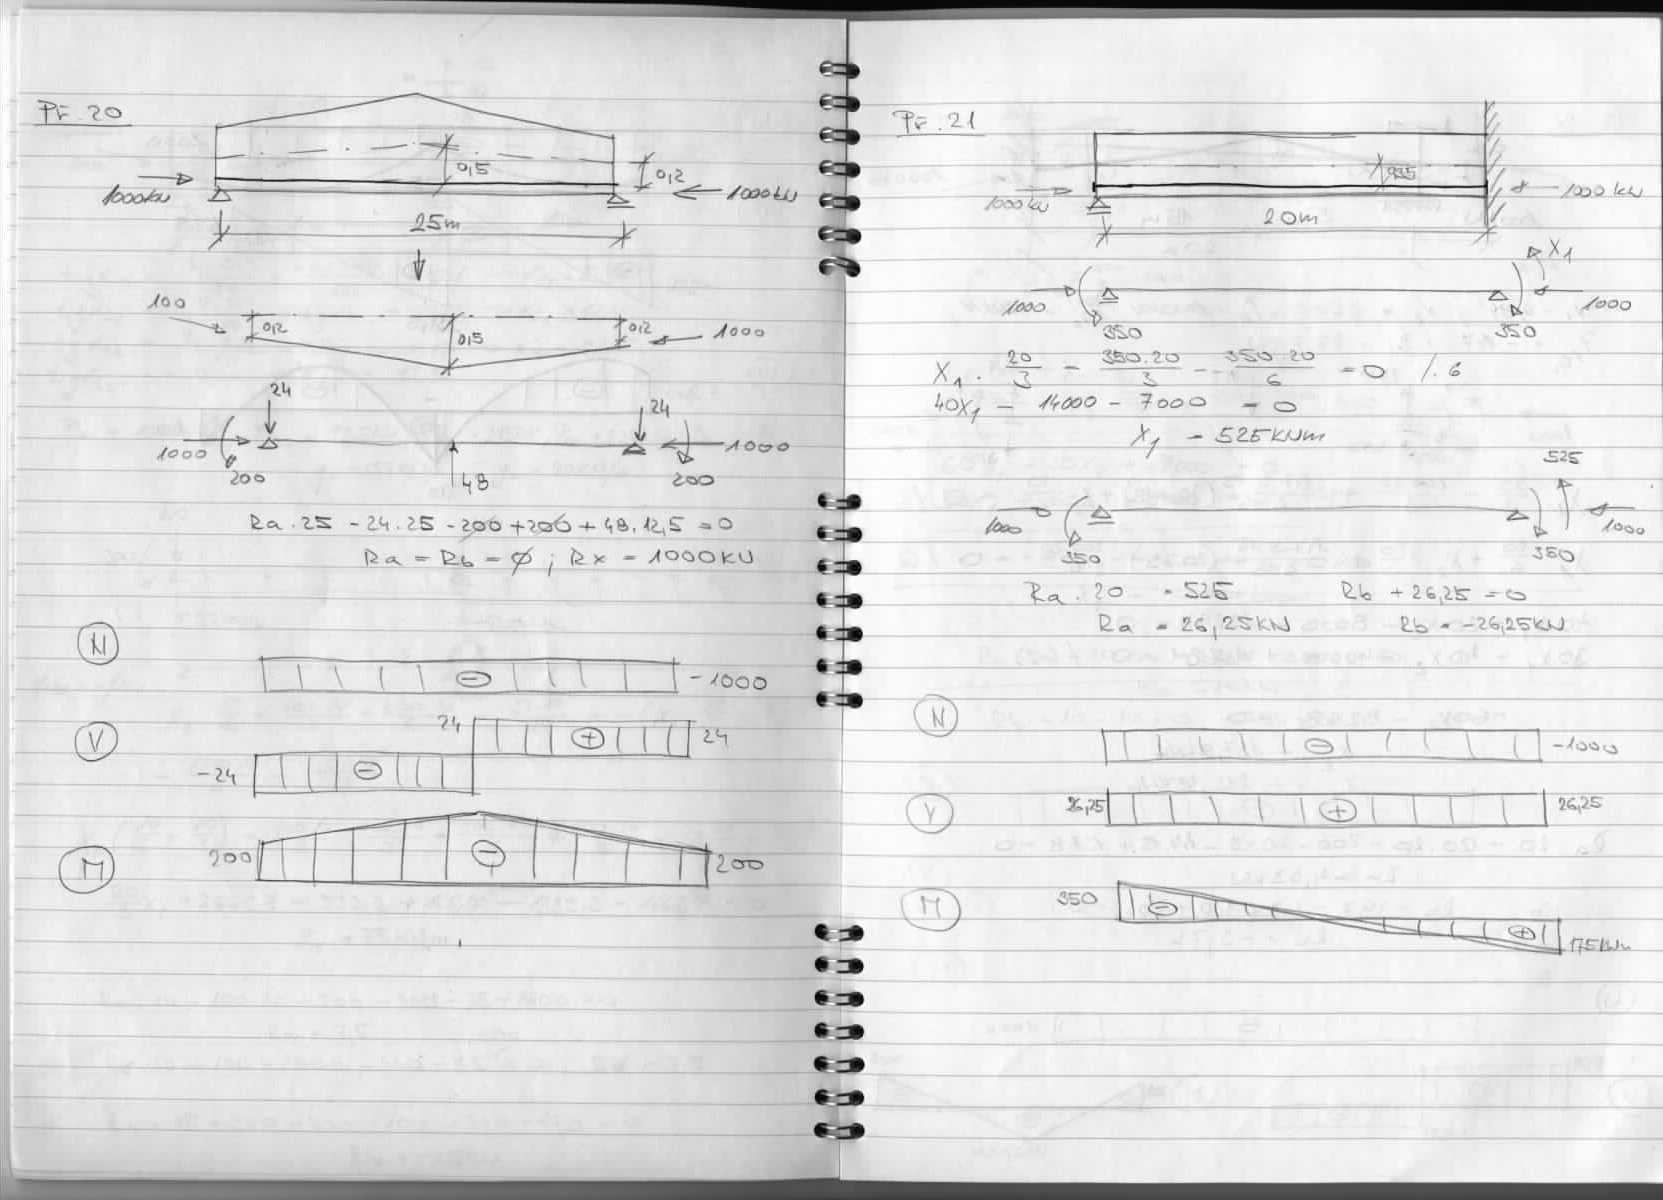 PŁ. 20
0,5
0,2
1000kN
1000kN
25m
100
0,2
0,5
0,2
1000
24
24
1000
1000
200
48
200
Ra . 25 - 24.25 - 200 + 200 + 48.12,5 = 0
Ra = Rb = ∅ ; Rx = 1000kN
N
-1000
V
24
24
-24
M
200
200
PŁ. 21
1000kN
1000kN
20m
X1
1000
1000
350
350
X1 . 20/3 - 350.20/3 - 350.20/6 = 0 /.6
40X1 - 14000 - 7000 = 0
X1 = 525kNm
525
1000
1000
350
350
Ra . 20 = 525 Rb + 26,25 = 0
Ra = 26,25kN Rb = -26,25kN
N
-1000
V
26,25
26,25
M
350
175kNm